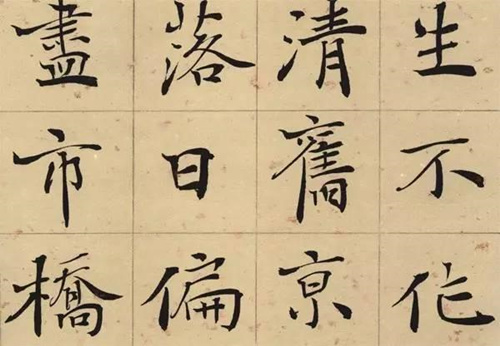 生不作
清舊京
落日偏
盡市橋